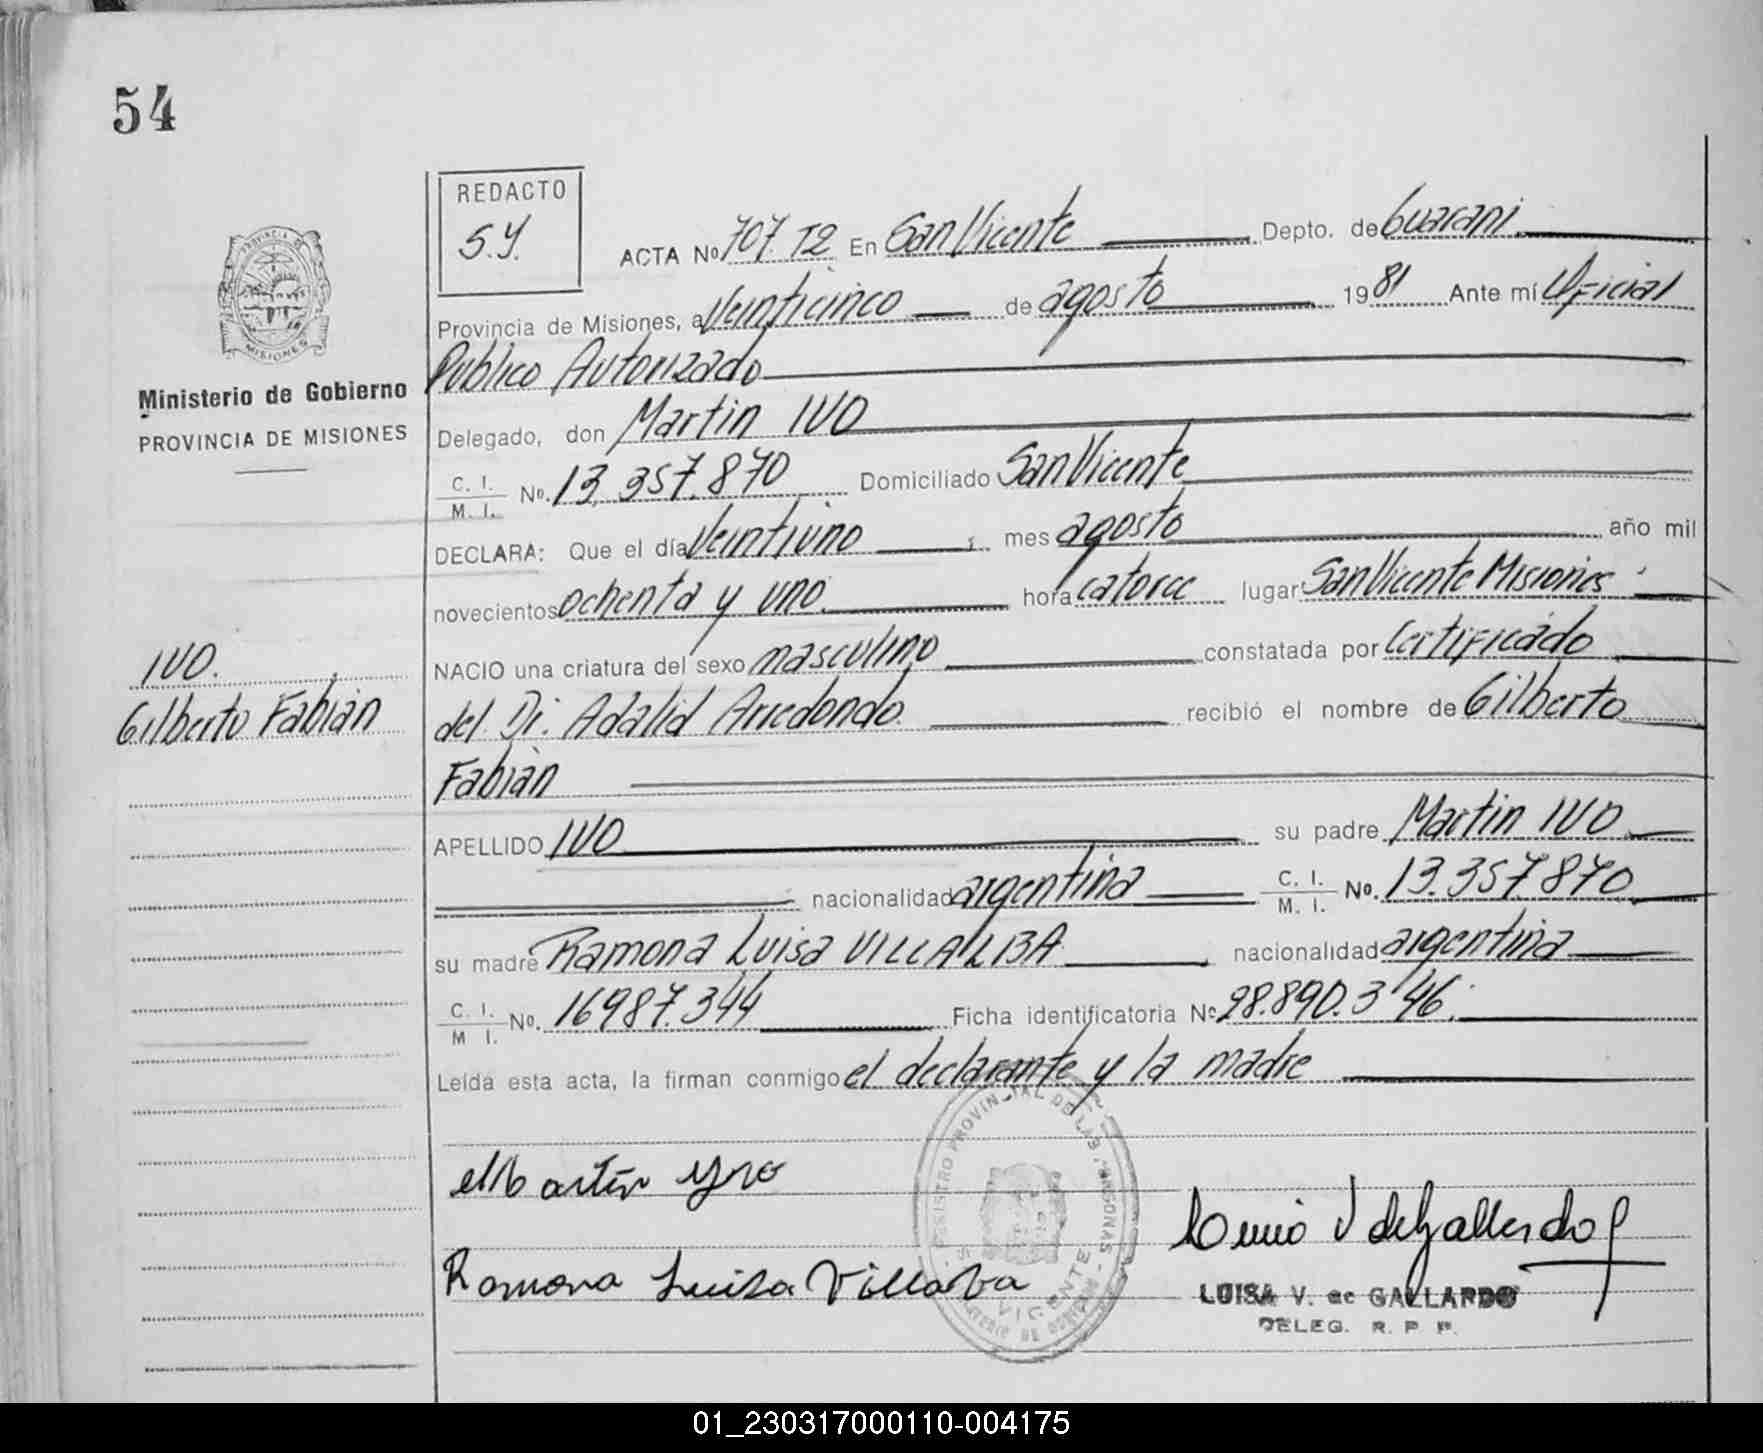 54
REDACTO
S.Y.
ACTA Nº 707. T2 En San Vicente Depto. de Guarani
Provincia de Misiones, a Veinticinco de agosto 1981 Ante mí Oficial
Publico Autorizado
Delegado, don Martin IVO
C. I. M. I. Nº. 13.357.870 Domiciliado San Vicente
DECLARA: Que el día Veintiuno mes agosto año mil
novecientos ochenta y uno. hora catorce lugar San Vicente Misiones
NACIO una criatura del sexo masculino constatada por Certificado
del Dr. Adalid Arredondo. recibió el nombre de Gilberto
Fabián
APELLIDO IVO su padre Martin IVO
nacionalidad argentina C. I. M. I. No. 13.357.870
su madre Ramona Luisa VILLALBA nacionalidad argentina
C. I. M I. No. 16987.344 Ficha identificatoria Nº 28.890.346.
Leída esta acta, la firman conmigo el declarante y la madre
PROVINCIA DE
MISIONES
Ministerio de Gobierno
PROVINCIA DE MISIONES
IVO.
Gilberto Fabián
Martín Yvo
Ramona Luisa Villalba
REGISTRO PROVINCIAL DE LAS PERSONAS
VICENTE
LUISA V. de GALLARDO
DELEG. R. P. P.
01_230317000110-004175